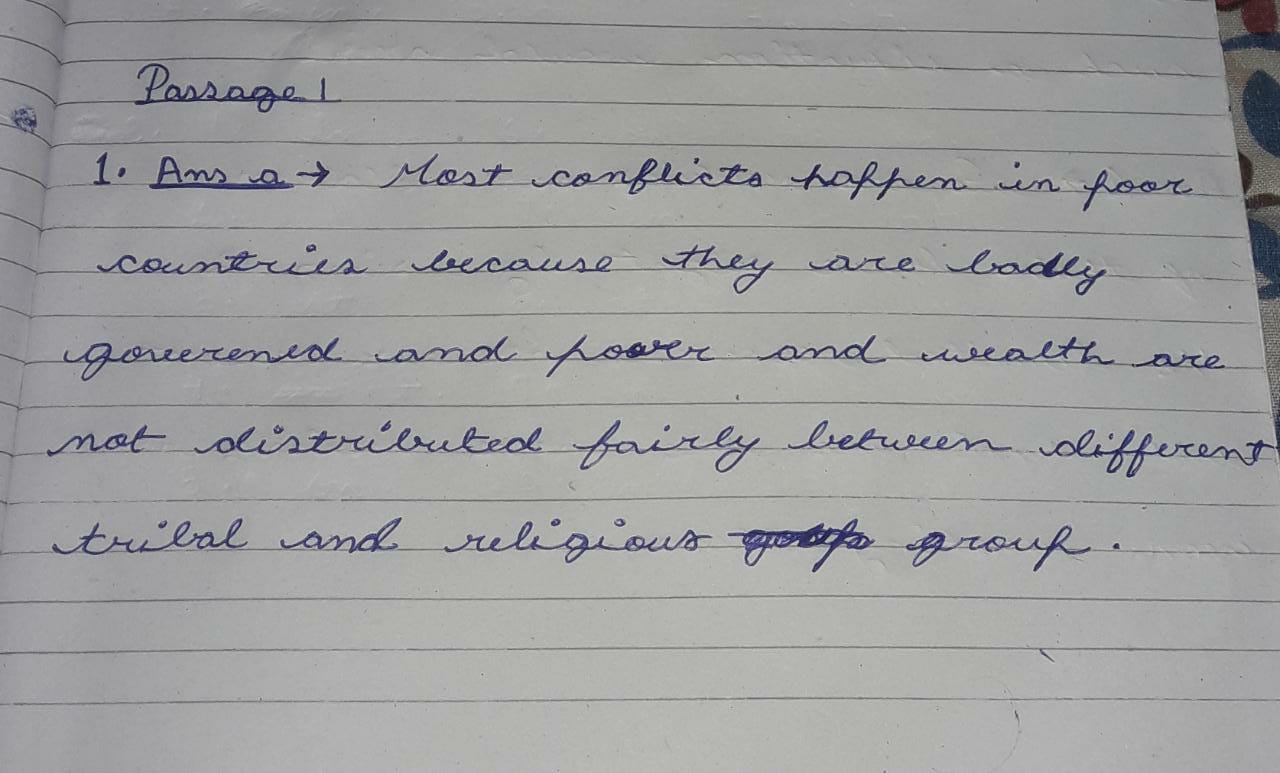 Passage 1
1. Ans a → Most conflicts happen in poor
countries because they are badly
goverened and power and wealth are
not distributed fairly between different
tribal and religious group.